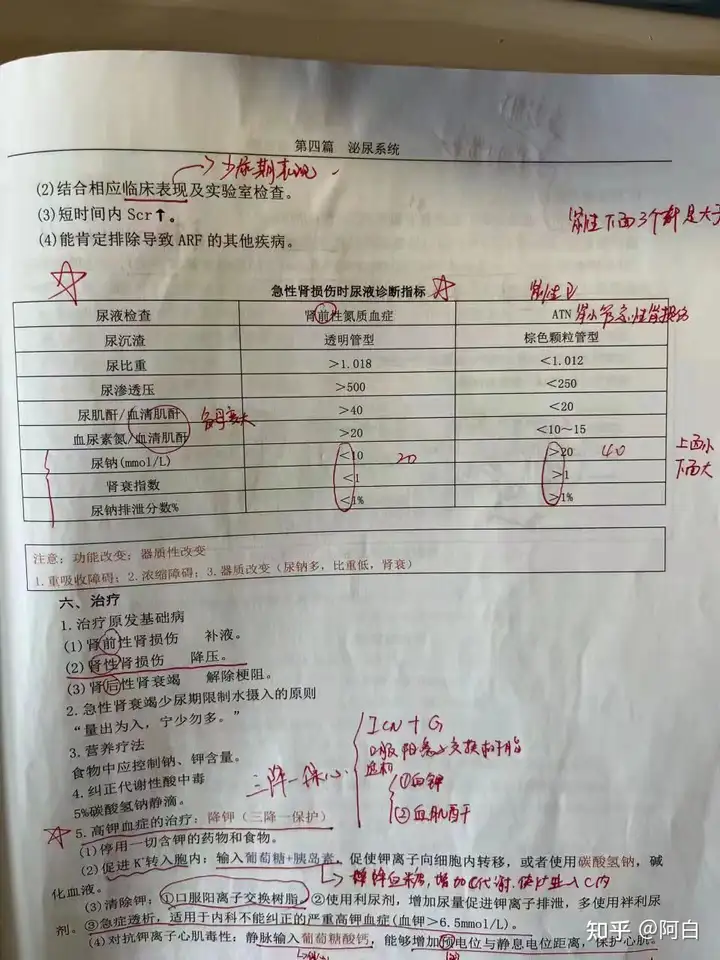 第四篇 泌尿系统
→少尿期表现
(2)结合相应临床表现及实验室检查。
(3)短时间内 Scr↑。
(4)能肯定排除导致 ARF 的其他疾病。
肾性下面3个都是大于
急性肾损伤时尿液诊断指标
肾性
尿液检查 肾前性氮质血症 ATN 肾小管
尿沉渣 透明管型 棕色颗粒管型
尿比重 >1.018 <1.012
尿渗透压 >500 <250
尿肌酐/血清肌酐 >40 <20
血尿素氮/血清肌酐 >20 <10~15
尿钠(mmol/L) <10 20 >20 40
肾衰指数 <1 >1
尿钠排泄分数% <1% >1%
上面小
下面大
注意：功能改变；器质性改变
1.重吸收障碍；2.浓缩障碍；3.器质改变（尿钠多，比重低，肾衰）
六、治疗
1.治疗原发基础病
(1)肾前性肾损伤 补液。
(2)肾性肾损伤 降压。
(3)肾后性肾衰竭 解除梗阻。
2.急性肾衰竭少尿期限制水摄入的原则
“量出为入，宁少勿多。”
3.营养疗法
食物中应控制钠、钾含量。
4.纠正代谢性酸中毒
5%碳酸氢钠静滴。
三降一保心
口服阳离子交换树脂
透析
①血钾
②血肌酐
5.高钾血症的治疗：降钾（三降一保护）
(1)停用一切含钾的药物和食物。
(2)促进 K⁺转入胞内：输入葡萄糖+胰岛素，促使钾离子向细胞内转移，或者使用碳酸氢钠，碱
化血液。
(3)清除钾：①口服阳离子交换树脂，②使用利尿剂，增加尿量促进钾离子排泄，多使用袢利尿
剂。③急症透析，适用于内科不能纠正的严重高钾血症(血钾>6.5mmol/L)。
(4)对抗钾离子心肌毒性：静脉输入葡萄糖酸钙，能够增加阈电位与静息电位距离，保护心肌。
知乎 @阿白